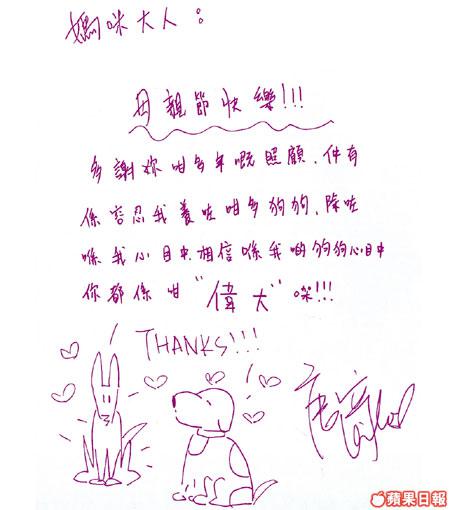 媽咪大人：
母親節快樂!!!
多謝妳咁多年嘅照顧，仲有
係容忍我養咗咁多狗狗，除咗
喺我心目中，相信喺我啲狗狗心目中
你都係咁“偉大”㗎!!!
THANKS!!!
蘋果日報